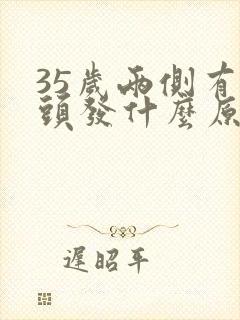 35歲兩側有
頭發什麼原
遲昭平